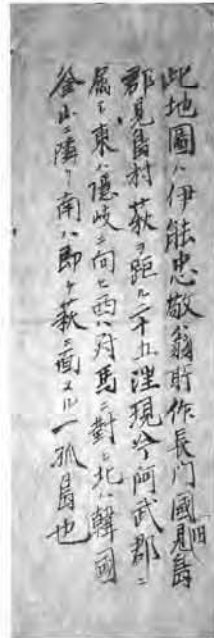 此地圖ハ伊能忠敬翁所作長门國旧見島
郡見島村萩ヲ距ル二十五浬現今阿武郡ニ
属シ東ハ隠岐ニ向ヒ西ハ対馬ニ對シ北ハ韓國
釜山ニ隣リ南ハ即チ萩ニ面スル一孤島也